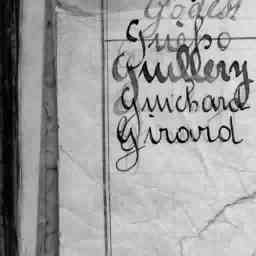 Godest
Guépo
Guillery
Guichard
Girard